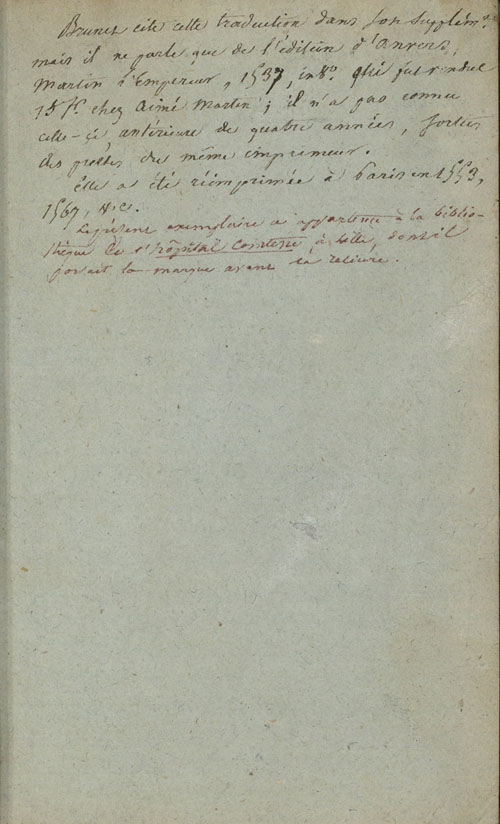 Brunet cite cette traduction dans son Supplém.t
mais il ne parle que de l'édition d'Anvers,
Martin l'Empereur, 1537, in 8.º qui fut vendue
15 f.s chez Aimé Martin ; il n'a pas connu
celle-ci antérieure de quatre années, sortie
des presses du même imprimeur.
Elle a été réimprimée à Paris en 1553,
1567, &c.
Le présent exemplaire a appartenu à la biblio-
thèque de l'hôpital Comtesse, à Lille, dont il
portait la marque avant sa reliure.